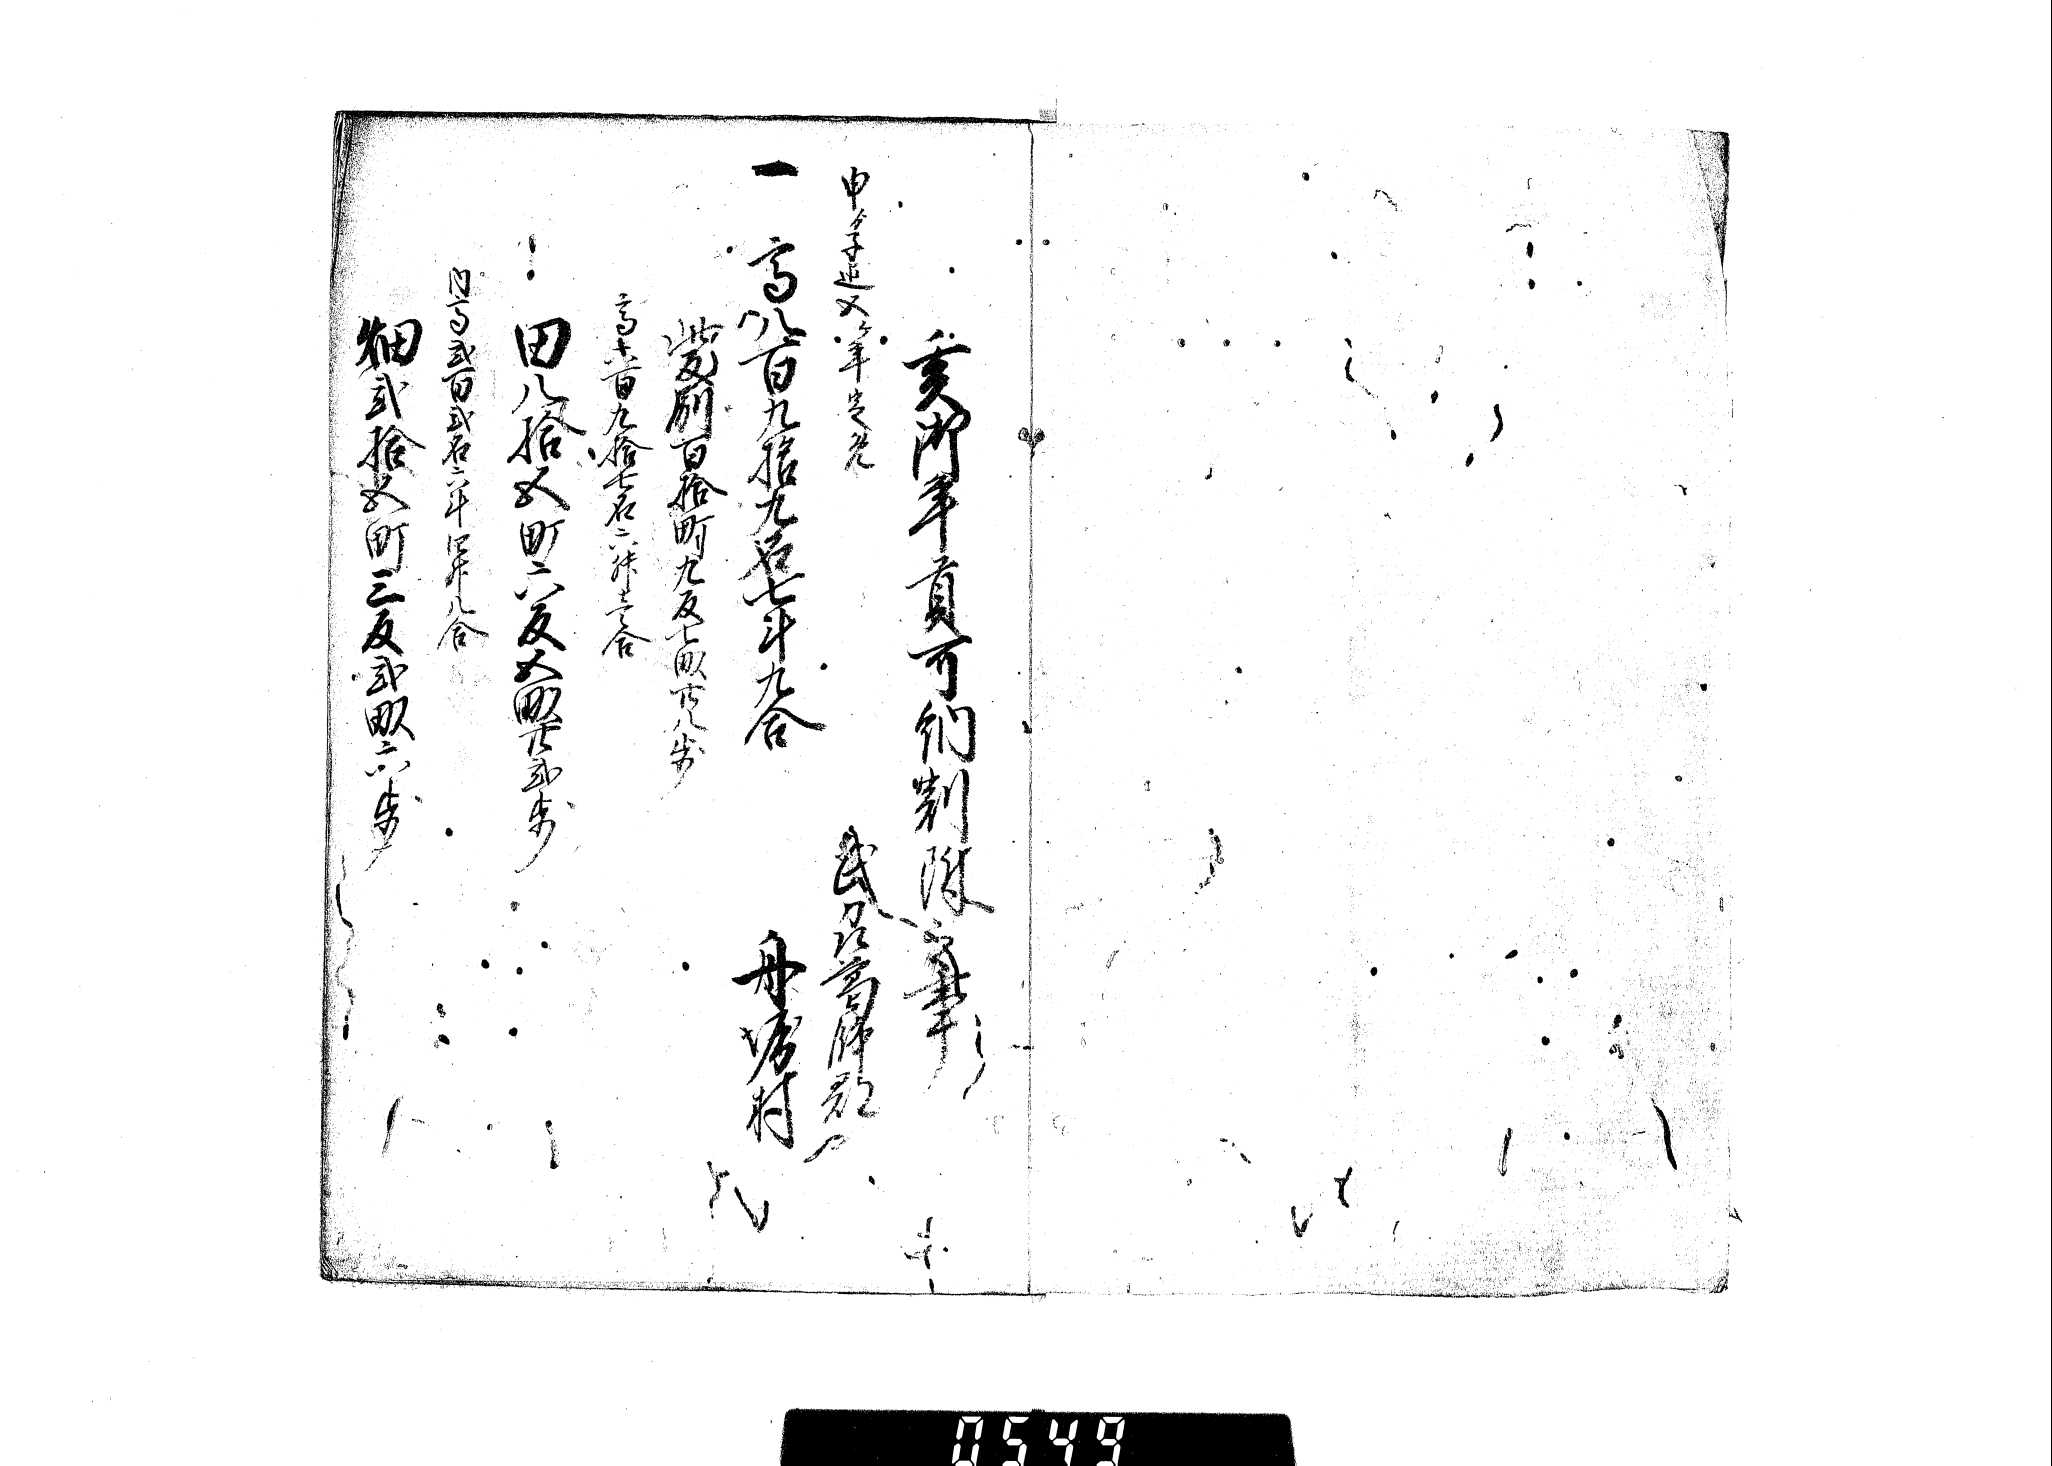 亥御年貢可納割附之事
申ゟ子迄五ケ年定免
武州葛飾郡
一 高八百九拾九石七斗九合
舟堀村
此反別百拾町九反七畝廿八歩
高六百九拾七石六升壱合
田八拾五町六反五畝廿弐歩
内高弐百弐石六斗四升八合
畑弐拾五町三反弐畝六歩
0549